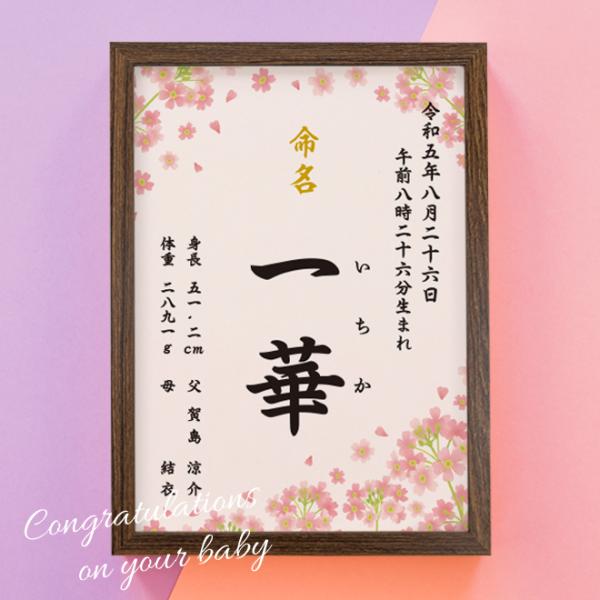 令和五年八月二十六日
午前八時二十六分生まれ
命名
一華
いちか
身長 五一・二cm 父 賀島 涼介
体重 二八九一g 母 結衣
Congratulations
on your baby